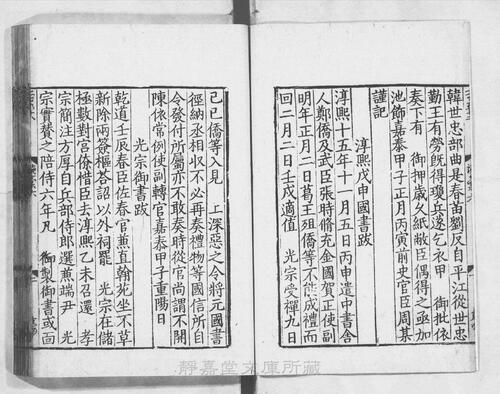 韓世忠部曲是春苗劉反自平江從世忠
勤王有勞旣得瓊兵遂乞衣甲　御批依
奏下有　御押歲久紙敝臣偶得之亟加
池飾嘉泰甲子正月丙寅前史官臣周某
謹記
淳熙戊申國書跋
淳熙十五年十一月五日丙申遣中書舍
人鄭僑及武臣張時脩充金國賀正使副
明年正月二日葛王殂僑等不能成禮而
回二月二日壬戌適值　光宗受禪九日
己巳僑等入見　上深惡之令將元國書
徑納丞相收不必再奏禮物等國信所自
令發付所屬亦不敢奏時從官尚謂不關
陳依常例使副轉官嘉泰甲子重陽日
光宗御書跋
乾道壬辰春臣佐春官兼直翰苑坐不草
新除兩簽樞荅詔以外祠罷　光宗在儲
極數對宮僚惜臣去淳熙乙未召還　孝
宗簡注方厚自兵部侍郎選兼端尹　光
宗實贊之陪侍六年凡　御製御書或面
靜嘉堂文庫所藏